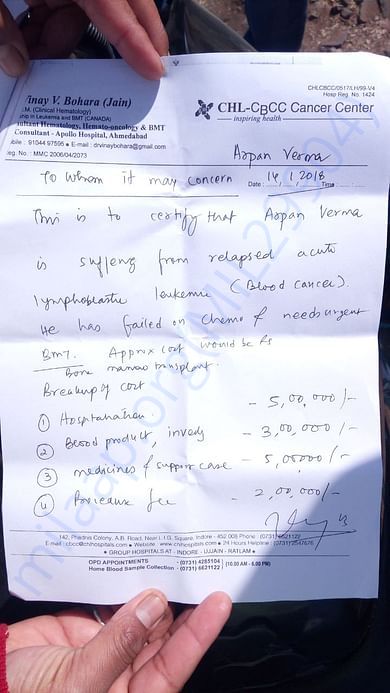 CHLCBCC/0517/LH/99-V4
Hosp Reg. No. 1424
inay V. Bohara (Jain)
.M. (Clinical Hematology)
hip in Leukemia and BMT (CANADA)
ultant Hematology, Hemato-oncology & BMT
Consultant - Apollo Hospital, Ahmedabad
bile : 91044 97595 ● E-mail : drvinaybohara@gmail.com
eg. No. : MMC 2006/04/2073
CHL-CBCC Cancer Center
inspiring health
Arpan Verma
To whom it may concern Date : 14/1/2018 Time :
This is to certify that Arpan Verma
is suffeng from relapsed acute
lymphoblastic leukemie (Blood cancer).
He has failed on chemo & needs urgent
BMT. Approx cost would be Rs
Bone marrow transplant.
Breakup of cost
① Hospitalisation. - 5,00,000/-
② Blood product, - 3,00,000/-
③ medicines & support case - 5,00000/-
④ fee - 2,00,000/-
142, Phadnis Colony, A.B. Road, Near L.I.G. Square, Indore - 452 008 Phone : (0731) 6621122
E-mail : cbcc@chlhospitals.com ● Website : www.chlhospitals.com ● 24 Hours Helpline : (0731) 2547676
● GROUP HOSPITALS AT : INDORE - UJJAIN - RATLAM ●
OPD APPOINTMENTS - (0731) 4285104 | (10.00 AM - 6.00 PM)
Home Blood Sample Collection - (0731) 6621122